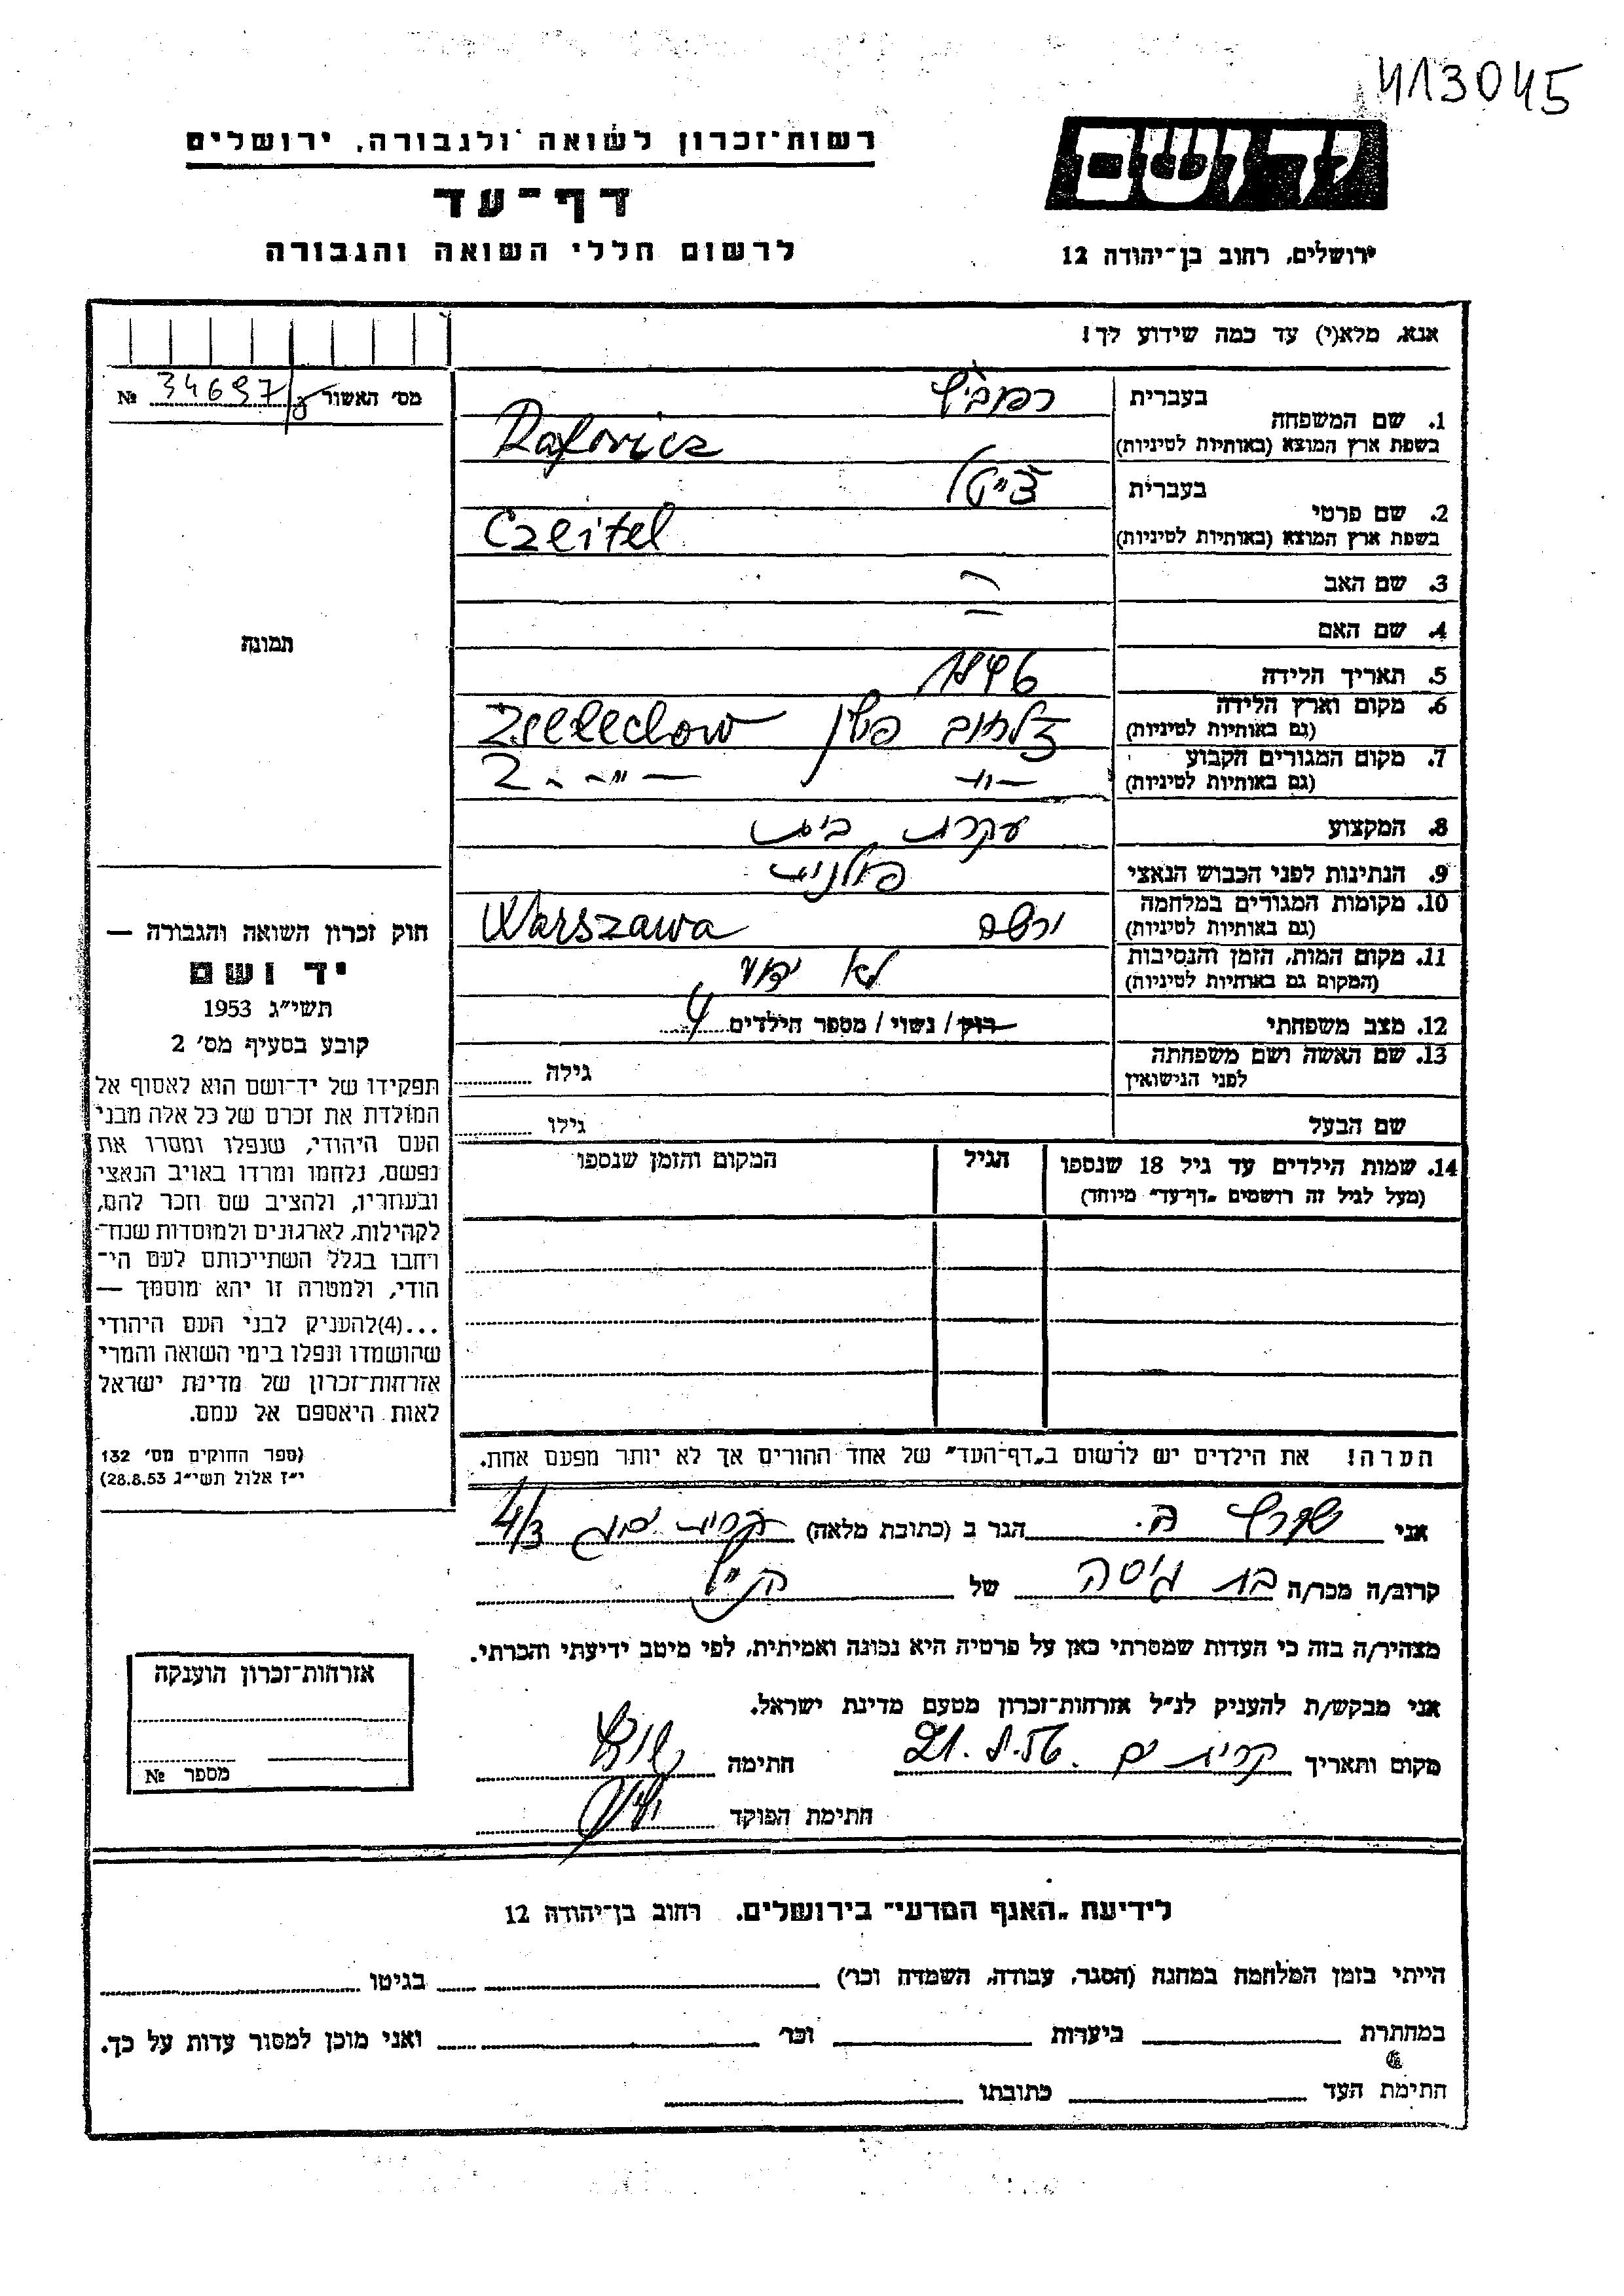 413045
רשות־זכרון לשואה ולגבורה, ירושלים
יד ושם
דף־עד
לרשום חללי השואה והגבורה
ירושלים, רחוב בן־יהודה 12
אנא, מלא(י) עד כמה שידוע לך!
מס׳ האשור № 34697
תמונה
1. שם המשפחה בעברית רפוביץ
בשפת ארץ המוצא (באותיות לטיניות) Rafovicz
2. שם פרטי בעברית צייטל
בשפת ארץ המוצא (באותיות לטיניות) Czeitel
3. שם האב
4. שם האם
5. תאריך הלידה 1846
6. מקום וארץ הלידה
(גם באותיות לטיניות) זלחוב פולין Zselechow
7. מקום המגורים הקבוע
(גם באותיות לטיניות) –״– –״–
8. המקצוע עקרת בית
9. הנתינות לפני הכבוש הנאצי פולנית
10. מקומות המגורים במלחמה
(גם באותיות לטיניות) ורשה Warszawa
11. מקום המות, הזמן והנסיבות
(המקום גם באותיות לטיניות) לא ידוע
12. מצב משפחתי רוק / נשוי / מספר הילדים 4
13. שם האשה ושם משפחתה
לפני הנישואין גילה
שם הבעל גילו
14. שמות הילדים עד גיל 18 שנספו הגיל המקום והזמן שנספו
(מעל לגיל זה רושמים „דף־עד״ מיוחד)
הערה! את הילדים יש לרשום ב„דף־העד״ של אחד ההורים אך לא יותר מפעם אחת.
חוק זכרון השואה והגבורה —
יד ושם
תשי״ג 1953
קובע בסעיף מס׳ 2
תפקידו של יד־ושם הוא לאסוף אל
המולדת את זכרם של כל אלה מבני
העם היהודי, שנפלו ומסרו את
נפשם, נלחמו ומרדו באויב הנאצי
ובעוזריו, ולהציב שם וזכר להם,
לקהילות, לארגונים ולמוסדות שנח־
רבו בגלל השתייכותם לעם הי־
הודי, ולמטרה זו יהא מוסמך —
...(4)להעניק לבני העם היהודי
שהושמדו ונפלו בימי השואה והמרי
אזרחות־זכרון של מדינת ישראל
לאות היאספם אל עמם.
(ספר החוקים מס׳ 132
י״ז אלול תשי״ג 28.8.53)
אני שורץ ב. הגר ב (כתובת מלאה) קרית ים 4/3
קרוב/ה מכר/ה בת גיסה של הנ״ל
מצהיר/ה בזה כי העדות שמסרתי כאן על פרטיה היא נכונה ואמיתית, לפי מיטב ידיעתי והכרתי.
אני מבקש/ת להעניק לנ״ל אזרחות־זכרון מטעם מדינת ישראל.
מקום ותאריך קרית ים חתימה
חתימת הפוקד
אזרחות־זכרון הוענקה
מספר №
לידיעת „האגף המדעי״ בירושלים. רחוב בן־יהודה 12
הייתי בזמן המלחמה במחנה (הסגר, עבודה, השמדה וכו׳) בגיטו
במחתרת ביערות וכו׳ ואני מוכן למסור עדות על כך.
חתימת העד כתובתו